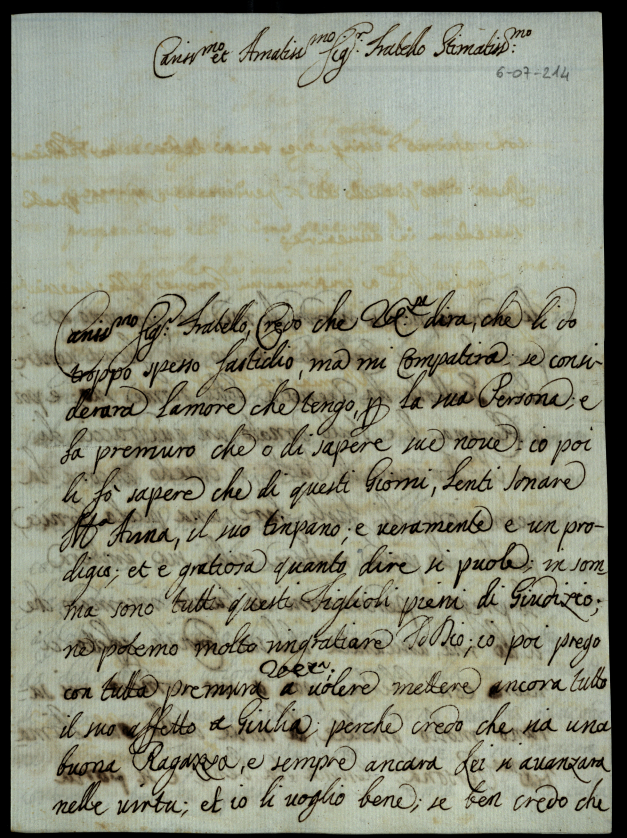 Cariss.mo et Amatiss.mo Sig.r Fratello Stimatiss.mo
6-07-214
Cariss.mo Sig.r Fratello, Credo che dira, che li do
troppo spesso fastidio, ma mi Compatira: se consi-
derara Lamore che tengo, p la sua Persona; e
la premura che o di sapere sue nove: io poi
li fò sapere che di questi Giorni, Senti sonare
M.a Anna, il suo tinpano; e veramente e un pro-
digio; et e gratiosa quanto dire si puole; in som
ma sono tutti questi Figlioli pieni di Giudizio;
ne potemo molto ringratiare Dio; io poi prego
con tutta premura a volere mettere ancora tutto
il suo affetto a Giulia; perche credo che sia una
buona Ragazza, e sempre ancara Lei si avanzara
nelle virtu; et io li voglio bene; se ben credo che